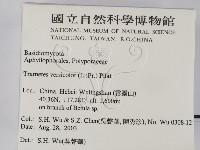 國立自然科學博物館
NATIONAL MUSEUM OF NATURAL SCIENCE
TAICHUNG, TAIWAN, R.O.CHINA
Basidiomycota
Aphyllophorales, Polyporaceae
Trametes versicolor (L.:Fr.) Pilat
Loc. China, Hebei: Wulingshan
alt. 1,600m
on branch of Betula sp.
Col.: S.H. Wu & S.Z. Chen No. Wu 0308-12
Date: Aug. 28, 2003
Det.: S.H. Wu